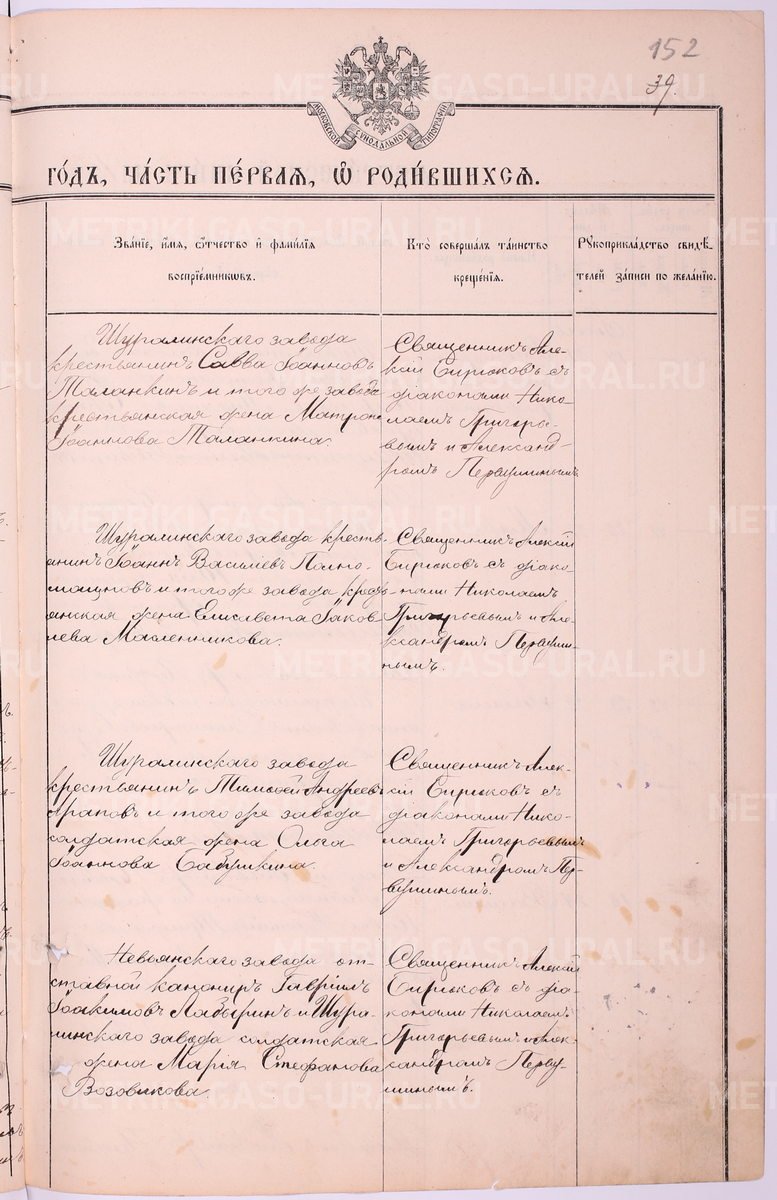 152
39.
МОСКОВСКОЙ СѴНОДАЛЬНОЙ ТИПОГРАФІИ
ГО́ДЪ, ЧА́СТЬ ПЕ́РВАЯ, Ѽ РОДИ́ВШИХСЯ.
Зва́нїе, и́мѧ, ѻ҆́тчество и҆ фами́лїѧ
воспрїе́мникѡвъ.
Кто̀ совершалъ та́инство
креще́нїѧ.
Рꙋкоприкла́дство свидѣ́-
телей за́писи по жела́нїю.
Шуралинскаго завода
крестьянинъ Савва Іоанновъ
Таланкинъ и того же завода
крестьянская жена Матрона
Іоаннова Таланкина.
Священникъ Але-
ксій Бирюковъ съ
діаконами Нико-
лаемъ Григорье-
вымъ и Александ-
ромъ Первушинымъ.
Шуралинскаго завода кресть-
анинъ Іоаннъ Василіевъ
и того же завода кресть-
янская жена Елисавета Іаков-
лева Масленникова.
Священникъ Алексій
Бирюковъ съ діако-
нами Николаемъ
Григорьевымъ и Але-
ксандромъ Первуши-
нымъ.
Шуралинскаго завода
крестьянинъ Тимоѳей Андреевъ
Араповъ и того же завода
солдатская жена Ольга
Іоаннова Сабуркина.
Священникъ Алек-
сій Бирюковъ съ
діаконами Нико-
лаемъ Григорьевымъ
и Александромъ Пер-
вушинымъ.
Невьянскаго завода от-
ставной канониръ Гавріилъ
Іоакимовъ Лабыринъ и Шура-
линскаго завода солдатская
жена Марія Стефанова
Возовикова.
Священникъ Алексій
Бирюковъ съ діа-
конами Николаемъ
Григорьевымъ и Алек-
сандромъ Перву-
шинымъ.
METRIKI.GASO-URAL.RU